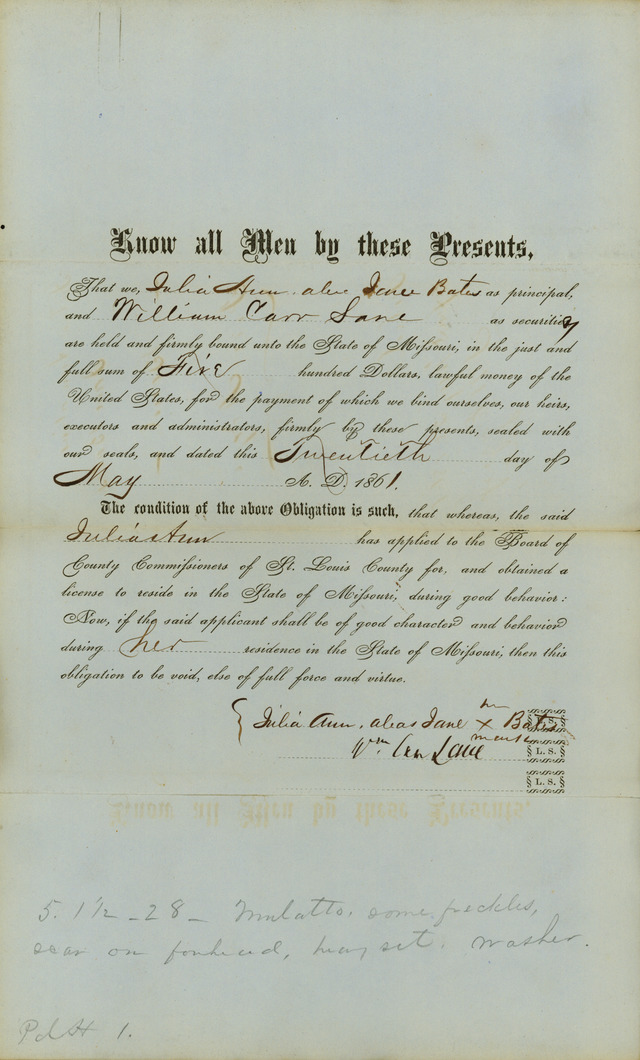 Know all Men by these Presents,
That we, Julia Ann. alias Jane Bates as principal,
and William Carr Lane as security
are held and firmly bound unto the State of Missouri, in the just and
full sum of Five hundred Dollars, lawful money of the
United States, for the payment of which we bind ourselves, our heirs,
executors and administrators, firmly by these presents, sealed with
our seals, and dated this Twentieth day of
May A. D. 1861.
The condition of the above Obligation is such, that whereas, the said
Julia Ann has applied to the Board of
County Commissioners of St. Louis County for, and obtained a
license to reside in the State of Missouri, during good behavior:
Now, if the said applicant shall be of good character and behavior
during her residence in the State of Missouri, then this
obligation to be void, else of full force and virtue.
Julia Ann. alias Jane x Bates L. S.
mark
Wm Carr Lane L. S.
L. S.
5. 1 1/2 - 28 - Mulatto. some freckles,
scar on forehead, heavy set. washer.
1.